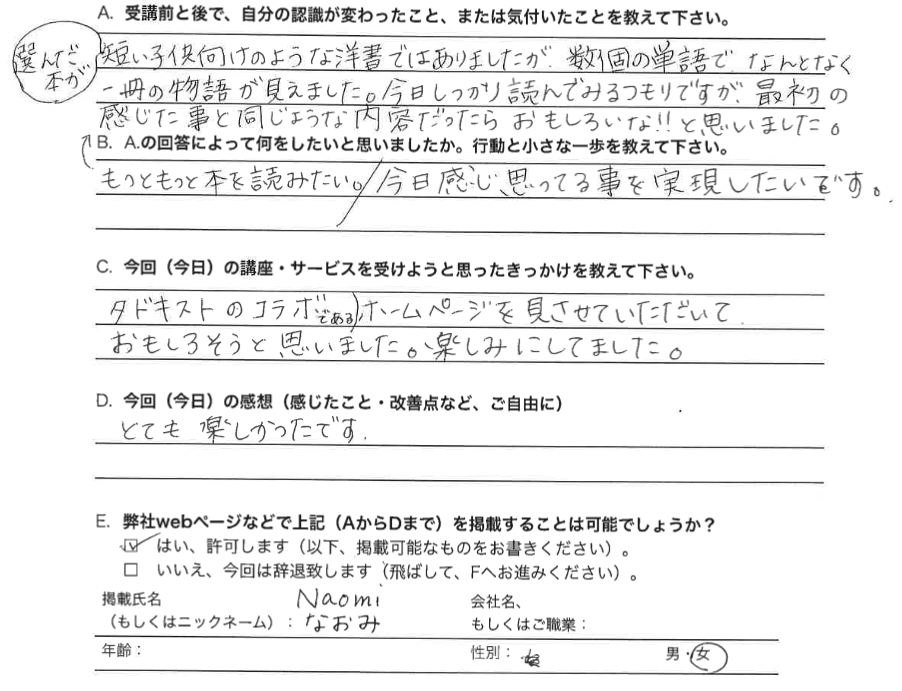 A. 受講前と後で、自分の認識が変わったこと、または気付いたことを教えて下さい。
選んだ
本が
短い子供向けのような洋書ではありましたが、数個の単語で なんとなく
一冊の物語が見えました。今日しっかり読んでみるつもりですが、最初の
感じた事と同じような内容だったら おもしろいな!!と思いました。
B. A.の回答によって何をしたいと思いましたか。行動と小さな一歩を教えて下さい。
もっともっと本を読みたい。/今日感じ思ってる事を実現したいです。
C. 今回（今日）の講座・サービスを受けようと思ったきっかけを教えて下さい。
タドキストのコラボである)ホームページを見させていただいて
おもしろそうと思いました。楽しみにしてました。
D. 今回（今日）の感想（感じたこと・改善点など、ご自由に）
とても 楽しかったです.
E. 弊社webページなどで上記（AからDまで）を掲載することは可能でしょうか？
☑ はい、許可します（以下、掲載可能なものをお書きください）。
□ いいえ、今回は辞退致します（飛ばして、Fへお進みください）。
掲載氏名 Naomi 会社名、
（もしくはニックネーム）： なおみ もしくはご職業：
年齢： 性別： 男・女